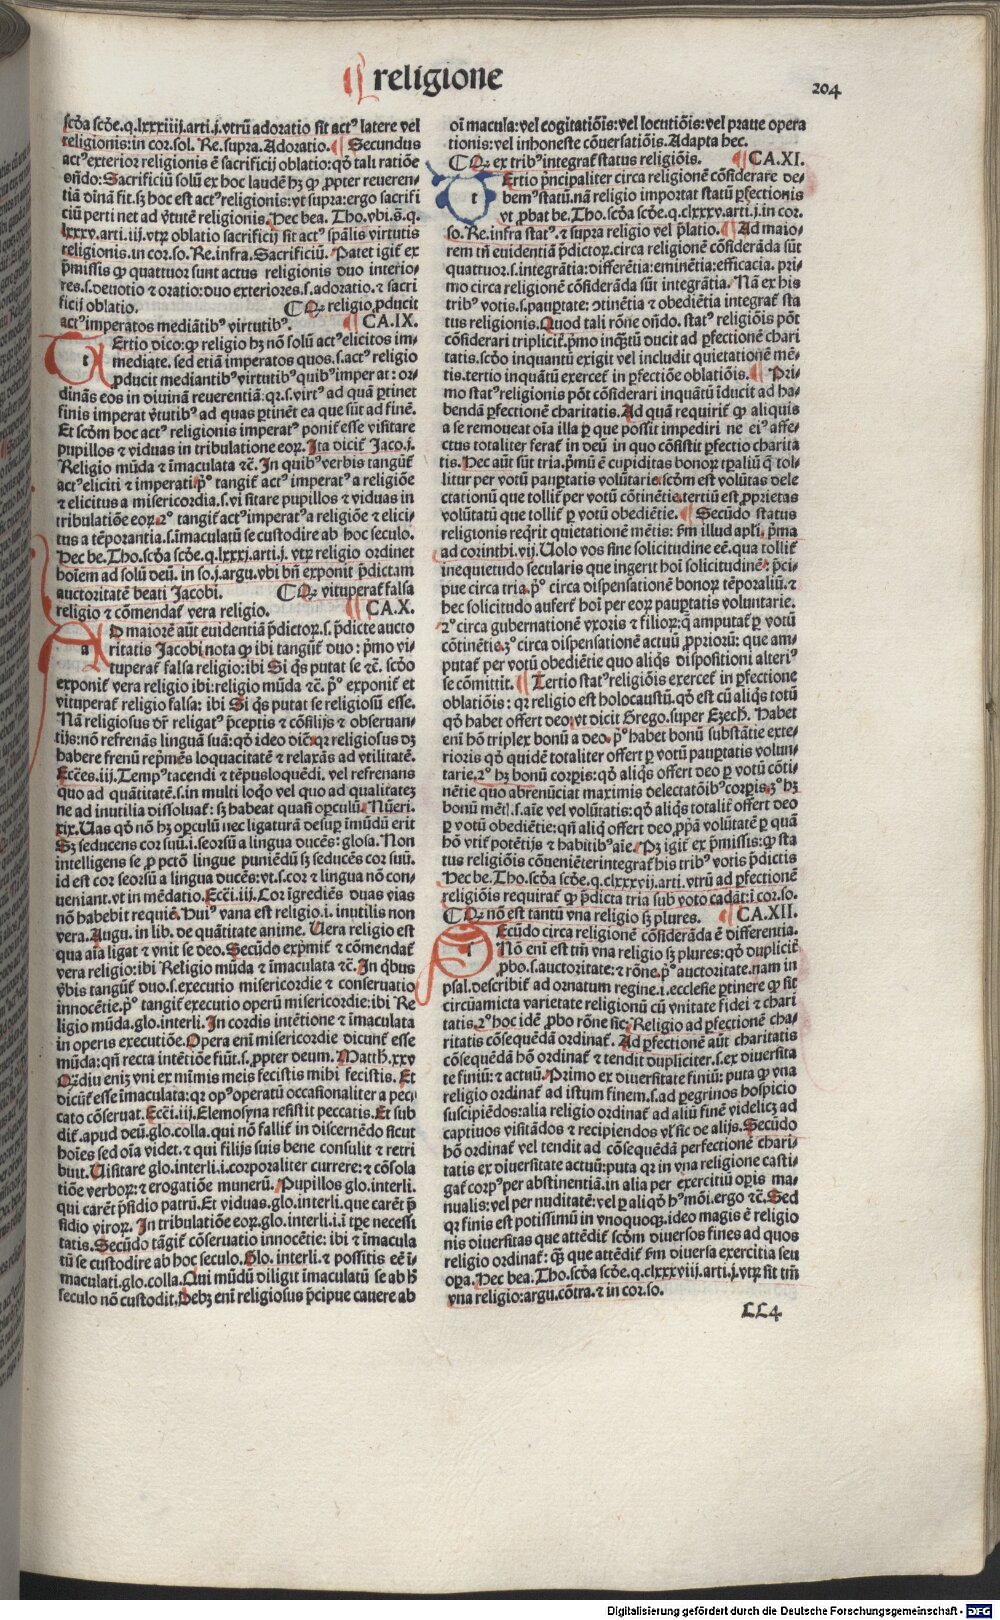 religione
204
scḋa scḋe.q.lxxxiiij.arti.j.vtrū adoratio sit actꝰ latere vel
religionis:in cor.sol. Re.supra.Adoratio. ¶ Secundus
actꝰ exterior religionis ē sacrificij oblatio:qḋ tali ratiōe
oñdo:Sacrificiū solū ex hoc laudē hꝫ ꝙ ꝓpter reueren-
tiā diuā fit.sꝫ hoc est actꝰ religionis:vt supra:ergo sacrifi
ciū pertinet ad v̄tutē religionis.Hec bea. Tho.vbi.s̄.q.
lxxxv.arti.iij.vtꝝ oblatio sacrificij sit actꝰ sp̄alis virtutis
religionis.in cor.so. Re.infra.Sacrificiū. Patet igit̄ ex
p̄missis ꝙ quattuor sunt actus religionis duo interio-
res.s.deuotio ⁊ oratio:duo exteriores.s.adoratio.⁊ sacri
ficij oblatio. ¶ Qꝛ religio ꝓducit
actꝰ imperatos mediātibꝰ virtutibꝰ. ¶ CA.IX.
tErtio dico:ꝙ religio hꝫ nō solū actꝰ elicitos im-
mediate. sed etiā imperatos quos.s.actꝰ religio
ꝓducit mediantibꝰ virtutibꝰ quibꝰ imperat:or-
dinās eos in diuinā reuerentiā:qꝛ.s.virtꝰ ad quā ꝑtinet
finis imperat v̄tutibꝰ ad quas ꝑtinēt ea que sūt ad finē.
Et scḋm hoc actꝰ religionis imperatꝰ ponit̄ esse visitare
pupillos ⁊ viduas in tribulatione eoꝝ. Ita dicit̄ Jaco.j.
Religio mūda ⁊ īmaculata ⁊c̄. In quibꝰ verbis tangūt̄
actꝰ eliciti ⁊ imperati.p̊ tangit̄ actꝰ imperatꝰ a religiōe
⁊ elicitus a misericordia.s.visitare pupillos ⁊ viduas in
tribulatiōe eoꝝ.2° tangit̄ actꝰ imperatꝰ a religiōe ⁊ elici-
tus a tēporantia.s.īmaculatū se custodire ab hoc seculo.
Hec be.Tho.scḋa scḋe.q.lxxxj.arti.j. vtꝝ religio ordinet
hoīem ad solū deū. in so.j.argu.vbi bn̄ exponit p̄dictam
auctoritatē beati Jacobi. ¶ Qꝛ vituperat̄ falsa
religio ⁊ cōmendat̄ vera religio. ¶ CA.X.
aD maiorē aūt euidentiā p̄dictoꝝ.s.p̄dicte aucto
ritatis Jacobi nota ꝙ ibi tangūt̄ duo:p̄mo vi-
tuperat̄ falsa religio:ibi Si q̄s putat se ⁊c̄. scḋo
exponit̄ vera religio ibi:religio mūda ⁊c̄. p̊ exponit̄ et
vituperat̄ religio falsa: ibi Si q̄s putat se religiosū esse.
Nā religiosus dr̄ religatꝰ p̄ceptis ⁊ cōsilijs ⁊ obseruan-
tijs:nō refrenās linguā suā:qḋ ideo dic̄:qꝛ religiosus dꝫ
habere frenū repm̄ēs loquacitatē ⁊ relaxās ad vtilitatē.
Ecc̄es.iij.Tempꝰ tacendi ⁊ tēpus loquēdi. vel refrenans
quo ad quātitatē.s.in multi loq̇o vel quo ad qualitatez
ne ad inutilia dissoluat̄: sꝫ habeat quasi oꝑculū. Nūeri.
xix.Uas qḋ nō hꝫ oꝑculū nec ligaturā desuꝑ īmūdū erit
Sꝫ seducens cor suū.i.seorsū a lingua ducēs:glosa. Non
intelligens se ꝓ pctō lingue puniēdū sꝫ seducēs cor suū.
id est cor seorsū a lingua ducēs:vt.s.cor ⁊ lingua nō con-
ueniant.vt in mēdatio.Ecc̄i.iii.Cor īgrediēs duas vias
nō habebit requiē.Huiꝰ vana est religio.i. inutilis non
vera.Augu. in lib. de quātitate anime. Uera religio est
qua aīa ligat ⁊ vnit se deo.Secūdo exp̄mit̄ ⁊ cōmendat̄
vera religio:ibi Religio mūda ⁊ īmaculata ⁊c̄. In q̄bus
v̄bis tangūt̄ duo.s.executio misericordie ⁊ conseruatio
innocētie.p̊ tangit̄ executio operū misericordie:ibi Re
ligio mūda.glo.interli. In cordis intētione ⁊ īmaculata
in operis executiōe.Opera enī misericordie dicunt̄ esse
mūda:qn̄ recta intētiōe fiūt.s.ꝓpter deum. Matth.xxv
Qꝛdiu eniꝫ vni ex minimis meis fecistis mihi fecistis. Et
dicūt̄ esse īmaculata:qꝛ opꝰ operatū occasionaliter a pec-
cato cōseruat.Ecc̄i.iii.Elemosyna resistit peccatis.Et sub
dit̄.apud deū.glo.colla.qui nō fallit̄ in discernēdo sicut
hoīes sed oīa videt.⁊ qui filijs suis bene consulit ⁊ retri
buit.Uisitare glo.interli.i.corporaliter currere:⁊ cōsola
tiōe verboꝝ:⁊ erogatiōe munerū. Pupillos glo.interli.
qui carēt p̄sidio patrū.Et viduas.glo.interli.que carēt p̄
sidio viroꝝ. In tribulatiōe eoꝝ.glo.interli.i.ī tꝑe necessi
tatis.Secūdo tāgit̄ cōseruatio innocētie: ibi ⁊ īmacula
tū se custodire ab hoc seculo.Glo. interli.⁊ possitis eē ī-
maculati.glo.colla.Qui mūdū diligit īmaculatū se ab h̄
seculo nō custodit.Debꝫ enī religiosus p̄cipue cauere ab
oī macula:vel cogitatiōis:vel locutiōis:vel praue opera
tionis:vel inhoneste cōuersatiōis.Adapta hec.
¶ Qꝛ ex tribꝰ integrat̄ status religiōis. ¶ CA.XI.
tErtio p̄ncipaliter circa religionē cōsiderare de-
bemꝰ statū.nā religio importat statū ꝑfectionis
vt ꝓbat be.Tho.scḋa scḋe.q.clxxxv.arti.j.in cor.
so. Re.infra statꝰ. ⁊ supra religio vel p̄latio. ¶ Ad maio-
rem tn̄ euidentiā p̄dictoꝝ.circa religionē cōsiderāda sūt
quattuor.s.integrātia:differētia:eminētia:efficacia. pri-
mo circa religionē cōsiderāda sūt integrātia. Nā ex his
tribꝰ votis.s.pauꝑtate:ↄtinētia ⁊ obediētia integrat̄ sta
tus religionis.Quod tali rōne oñdo. statꝰ religiōis pōt
cōsiderari triplicit̄.p̄mo inqᷓtū ducit ad ꝑfectionē chari
tatis.scḋo inquantū exigit vel includit quietationē mē-
tis.tertio inquātū exercet̄ in ꝑfectiōe oblatiōis. ¶ Pri-
mo statꝰ religionis pōt cōsiderari inquātū iducit ad ha-
bendā ꝑfectionē charitatis. Ad quā requirit̄ ꝙ aliquis
a se remoueat oīa illa ꝑ que possit impediri ne eiꝰ affe-
ctus totaliter ferat̄ in deū in quo cōsistit ꝑfectio charita
tis.Hec aūt sūt tria.p̄mū ē cupiditas bonoꝝ tꝑaliū q̄ tol-
litur per votū pauꝑtatis volūtarie.scḋm est volūtas dele
ctationū que tollit̄ per votū cōtinētie.tertiū est ꝓprietas
volūtatū que tollit̄ ꝑ votū obediētie. ¶ Secūdo status
religionis req̇rit quietationē mētis: s̄m illud apl̄i. p̄ma
ad corinthi.vij.Uolo vos sine solicitudine eē.qua tollit̄
inequietudo secularis que ingerit hoī solicitudinē: p̄ci-
pue circa tria.p̊ circa dispensationē bonoꝝ tēporaliū.⁊
hec solicitudo aufert̄ hoī per eoꝝ pauꝑtatis voluntarie.
2° circa gubernationē vxoris ⁊ filioꝝ:q̄ amputat̄ ꝑ votū
cōtinētie.3° circa dispensationē actuū ꝓprioꝝ: que am-
putat̄ per votū obediētie quo aliq̄s dispositioni alteriꝰ
se cōmittit. ¶ Tertio statꝰ religiōis exercet̄ in ꝑfectione
oblatiōis: qꝛ religio est holocaustū.qḋ est cū aliq̄s totū
qḋ habet offert deo:vt dicit Grego.super Ezech. Habet
enī hō triplex bonū a deo. p̊ habet bonū substātie exte-
rioris qḋ quidē totaliter offert ꝑ votū pauꝑtatis volun-
tarie.2° hꝫ bonū corꝑis:qḋ aliq̄s offert deo ꝑ votū cōti-
nētie quo abrenūciat maximis delectatōibꝰ corꝑis.3° hꝫ
bonū mēt̄l.s.aīe vel volūtatis: qḋ aliq̄s totalit̄ offert deo
ꝑ votū obediētie:qn̄ aliq̄ offert deo ꝓpā volūtatē ꝑ quā
hō vtit̄ potētijs ⁊ habitibꝰ aīe. Pꝫ igit̄ ex p̄missis:ꝙ sta
tus religiōis cōueniēter integrat̄ his tribꝰ votis p̄dictis
Hec be.Tho.scḋa scḋe.q.clxxxvij.arti.vtrū ad ꝑfectionē
religiōis requirat̄ ꝙ p̄dicta tria sub voto cadāt:ī cor.so.
¶ Qꝛ nō est tantū vna religio sꝫ plures. ¶ CA.XII.
sEcūdo circa religionē cōsiderāda ē differentia.
Nō enī est tm̄ vna religio sꝫ plures:qḋ duplicit̄
ꝓbo.s.auctoritate:⁊ rōne.p̊ auctoritate.nam in
psal.describit̄ ad ornatum regine.i.ecclesie ꝑtinere ꝙ sit
circūamicta varietate religionū cū vnitate fidei ⁊ chari
tatis.2° hoc idē ꝓbo rōne sic:Religio ad ꝑfectionē cha-
ritatis cōsequēdā ordinat̄. Ad ꝑfectionē aūt charitatis
cōsequēdā hō ordinat̄ ⁊ tendit dupliciter.s.ex diuersita
te finiū:⁊ actuū. Primo ex diuersitate finiū: puta ꝙ vna
religio ordinat̄ ad istum finem.s.ad ꝑegrinos hospicio
suscipiēdos:alia religio ordinat̄ ad aliū finē videlicꝫ ad
captiuos visitādos ⁊ recipiendos vl̓ sic de alijs.Secūdo
hō ordinat̄ vel tendit ad cōsequēdā perfectionē chari-
tatis ex diuersitate actuū:puta qꝛ in vna religione casti-
gat̄ corpꝰ per abstinentiā.in alia per exercitiū oꝑis ma-
nualis:vel per nuditatē:vel ꝑ aliqḋ hꝰ mōi.ergo ⁊c̄.Sed
qꝛ finis est potissimū in vnoquoqꝫ.ideo magis ē religio
nis diuersitas que attēdit̄ scḋm diuersos fines ad quos
religio ordinat̄: qᷓꝫ que attēdit̄ s̄m diuersa exercitia seu
oꝑa.Hec bea.Tho.scḋa scḋe.q.clxxxviij.arti.j.vtꝝ sit tm̄
vna religio:argu.cōtra.⁊ in cor.so.
LL4
Digitalisierung gefördert durch die Deutsche Forschungsgemeinschaft - DFG